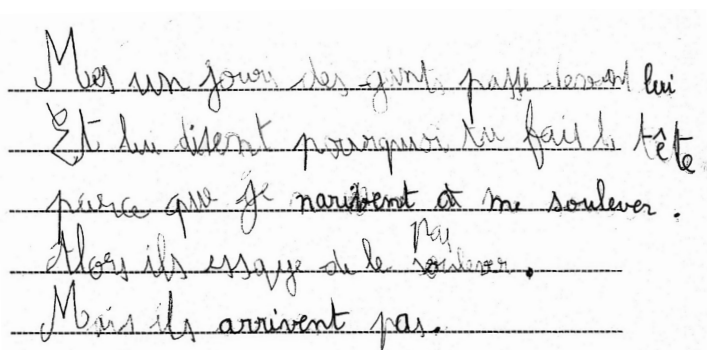 Mes un jour des gints passe devant lui
Et lui disent pourquoi tu fait la tête
parce que je narivent at me soulever.
Alors ils essaye de le pas soulever.
Mais ils arrivent pas.